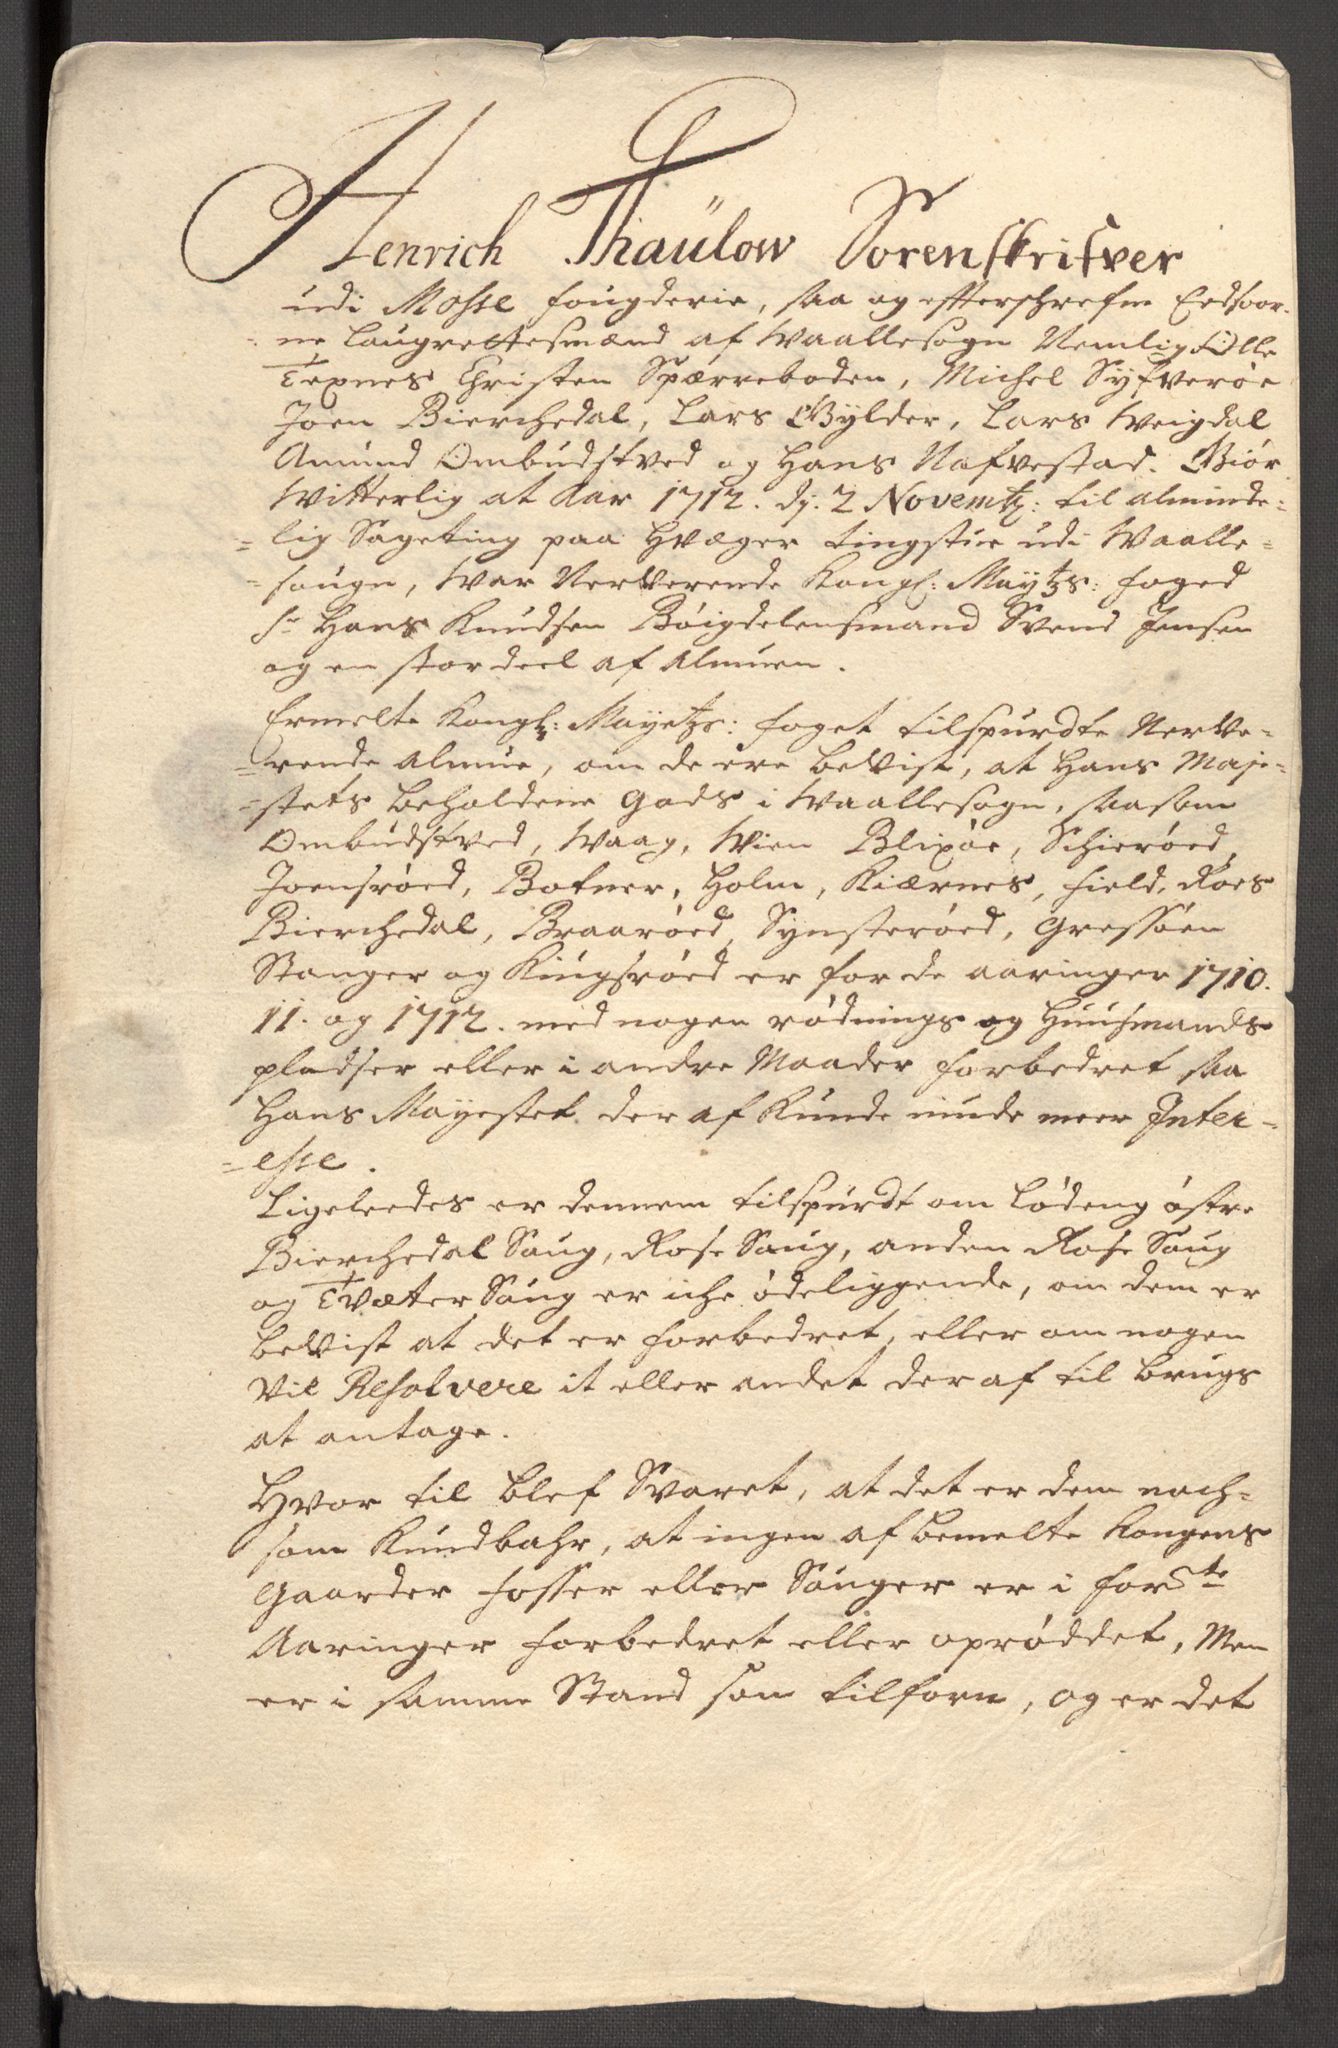 Henrich Thaülow Sorenskrifver
udi Mosse fougderie, saa og efterschrefne Eedsvor-
ne Laugrettesmænd af Waallesogn Nemlig Olle
Texnes Christen Spærreboden, Michel Syfverøe
Joen Bierchedal, Lars Gylder, Lars Weigdal
Amund Ombudstved og Hans Nafvestad. Giør
Witterlig at Aar 1712. dj. 2 Novemb: til alminde-
=lig Sageting paa Hvæger tingstue udi Waalle=
=sougn, War Nerverende Kongl: Maytz: foged
Sr Hans Knudsen Bøigdelensmand Svend Jensen
og en stor deel af Almuen.
Ermelte Kongl: Mayetz: foget tilspurdte Nerve-
=rende Almue, om de ere bevist, at Hans Maje-
=stets beholdene Gods i Waallesogn, saasom
Ombudstved, Waag, Wien Blixøe, Schierøed,
Joensrøed, Botner, Holm, Kiærnes, field, Roes
Bierchedal, Braarøed, Synsterøed, Gressøen
Stanger og Kiugsrøed er for de aaringer 1710.
11. og 1712. med nogen rødnings og Huusmands
pladser eller i andre Maader forbedret saa
Hans Mayestet der af Kunde niude meer Inter-
=esse.
Ligeleedes er dennem tilspurdt om Lødeng østre
Bierchedal Saug, Rose Saug, anden Rose Saug
og Tvæter Saug er iche ødeliggende, om dem er
bevist at det er forbedret, eller om nogen
Vil Resolvere it eller andet der af til brugs
at antage.
Hvor til blef Svaret, at det er dem noch=
som Kundbahr, at ingen af bemelte Kongens
Gaarder fosser eller Sauger er i forste
Aaringer forbedret eller oprøddet, Men
er i samme Stand som tilforn, og er det